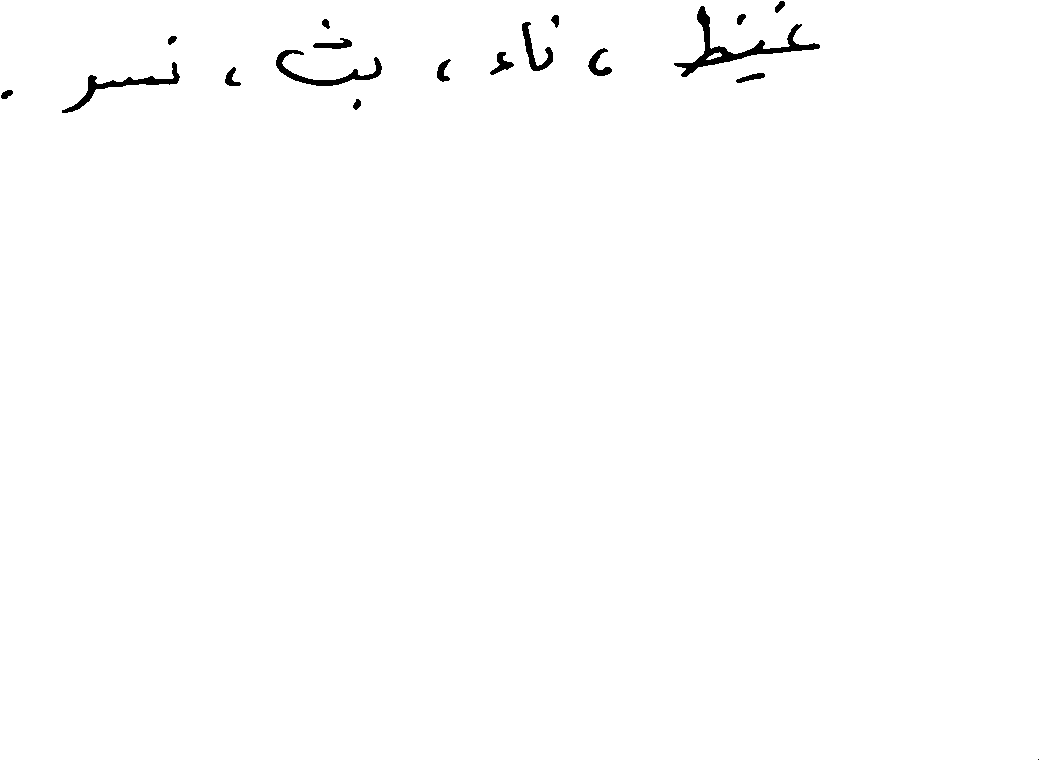 غيظ ، ناء ، بث ، نسر .